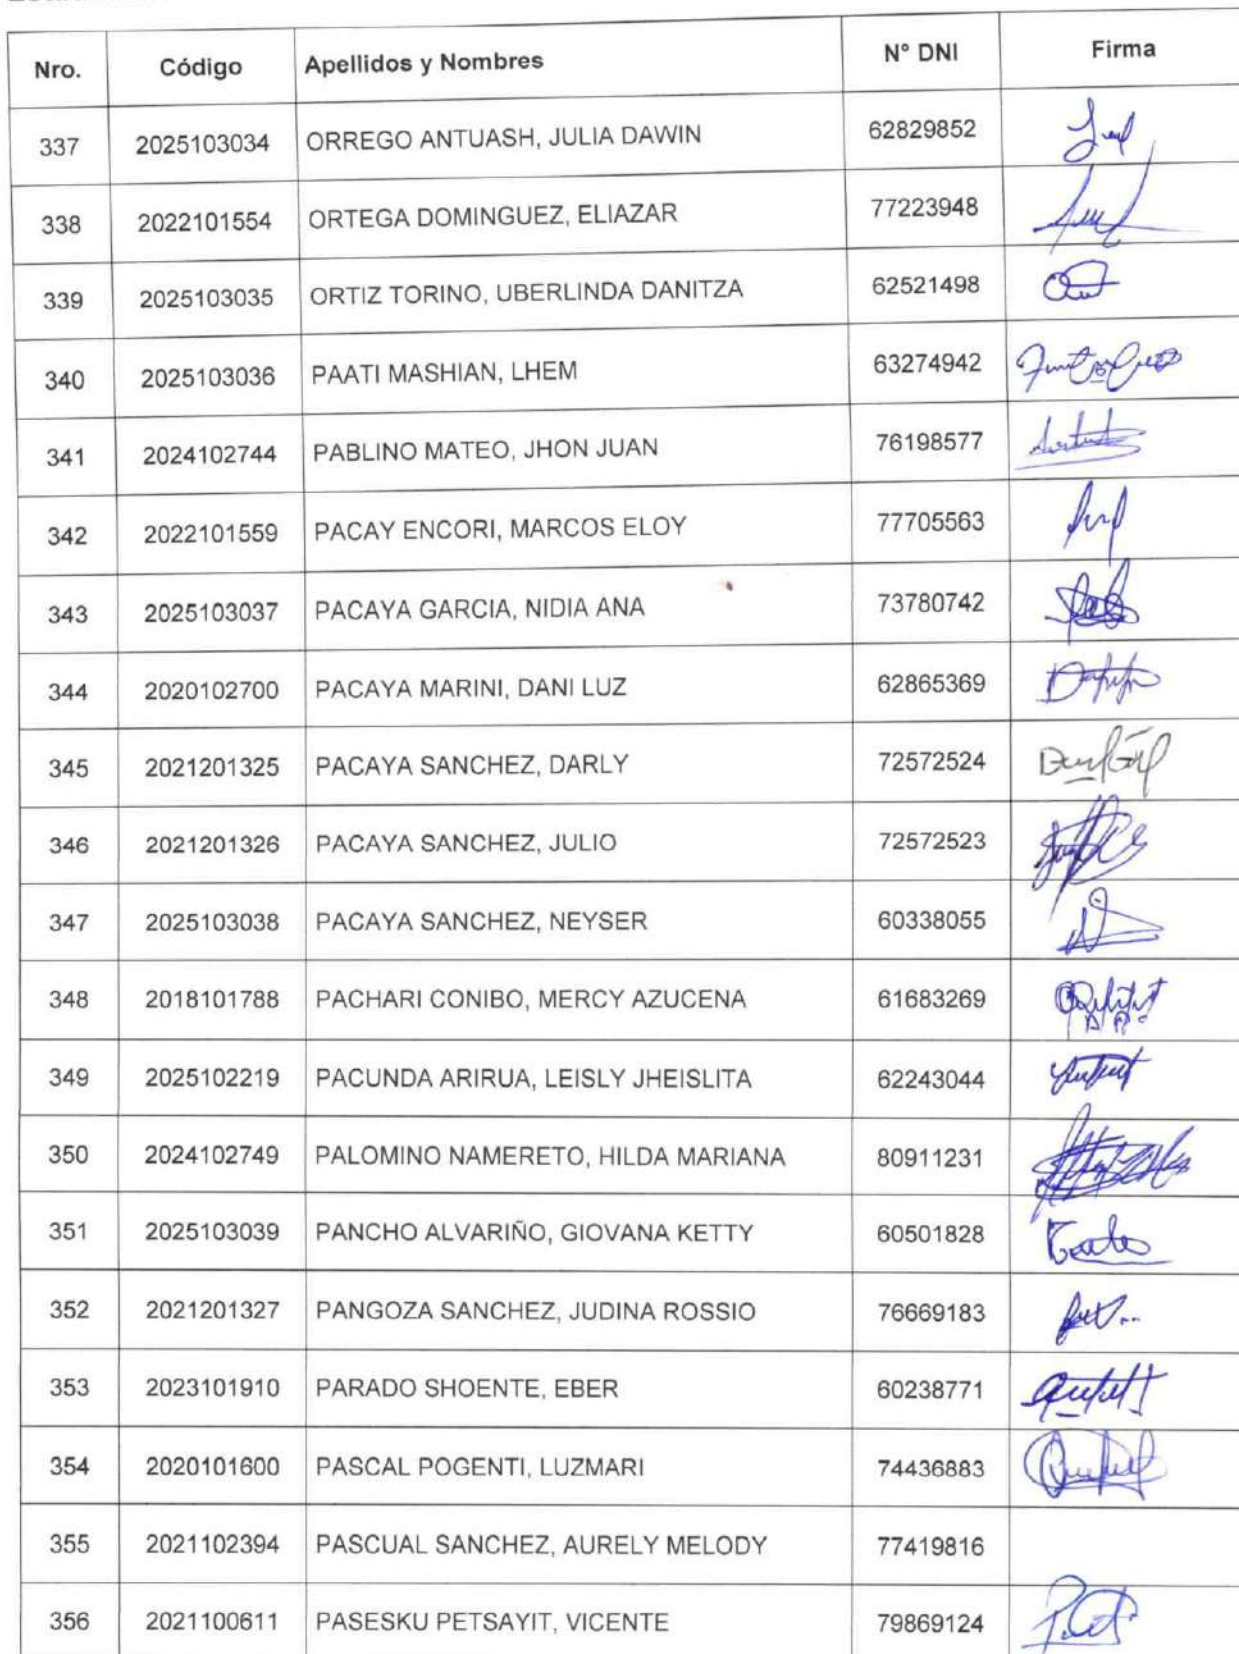 Nro. Código Apellidos y Nombres N° DNI Firma
337 2025103034 ORREGO ANTUASH, JULIA DAWIN 62829852
338 2022101554 ORTEGA DOMINGUEZ, ELIAZAR 77223948
339 2025103035 ORTIZ TORINO, UBERLINDA DANITZA 62521498
340 2025103036 PAATI MASHIAN, LHEM 63274942
341 2024102744 PABLINO MATEO, JHON JUAN 76198577
342 2022101559 PACAY ENCORI, MARCOS ELOY 77705563
343 2025103037 PACAYA GARCIA, NIDIA ANA 73780742
344 2020102700 PACAYA MARINI, DANI LUZ 62865369
345 2021201325 PACAYA SANCHEZ, DARLY 72572524
346 2021201326 PACAYA SANCHEZ, JULIO 72572523
347 2025103038 PACAYA SANCHEZ, NEYSER 60338055
348 2018101788 PACHARI CONIBO, MERCY AZUCENA 61683269
349 2025102219 PACUNDA ARIRUA, LEISLY JHEISLITA 62243044
350 2024102749 PALOMINO NAMERETO, HILDA MARIANA 80911231
351 2025103039 PANCHO ALVARIÑO, GIOVANA KETTY 60501828
352 2021201327 PANGOZA SANCHEZ, JUDINA ROSSIO 76669183
353 2023101910 PARADO SHOENTE, EBER 60238771
354 2020101600 PASCAL POGENTI, LUZMARI 74436883
355 2021102394 PASCUAL SANCHEZ, AURELY MELODY 77419816
356 2021100611 PASESKU PETSAYIT, VICENTE 79869124